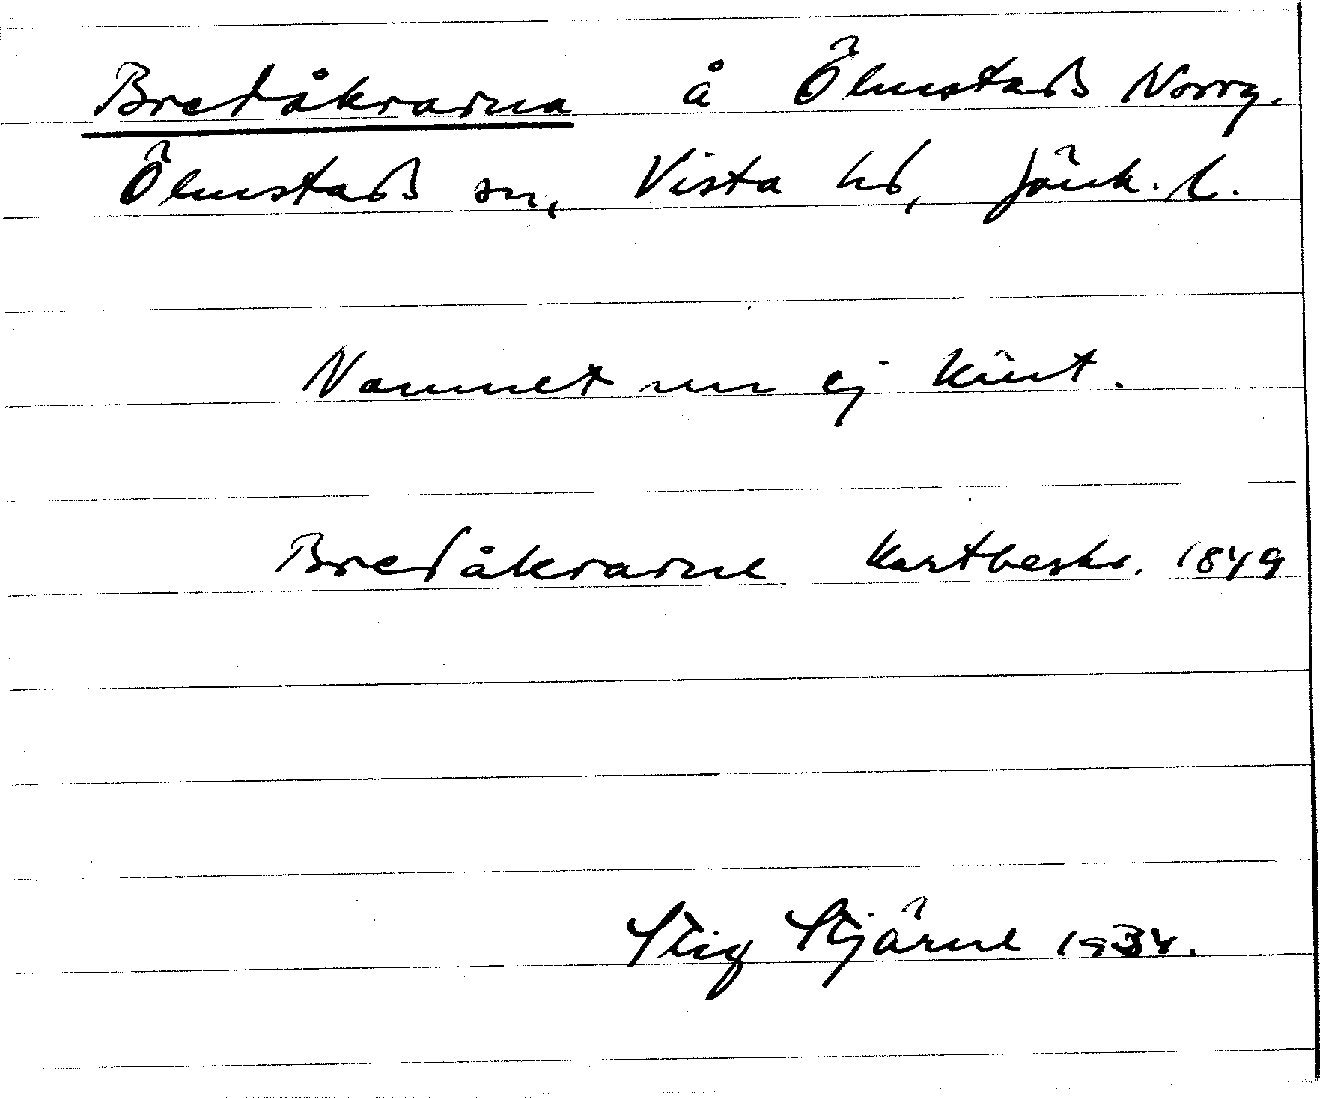 Bredåkrarna å Ölmstads Norrg.
Ölmstads sn, Vista hd, Jönk. l.
Namnet nu ej känt.
Bredåkrarne Kartbeskr. 1849
Stig Stjärne 1934.